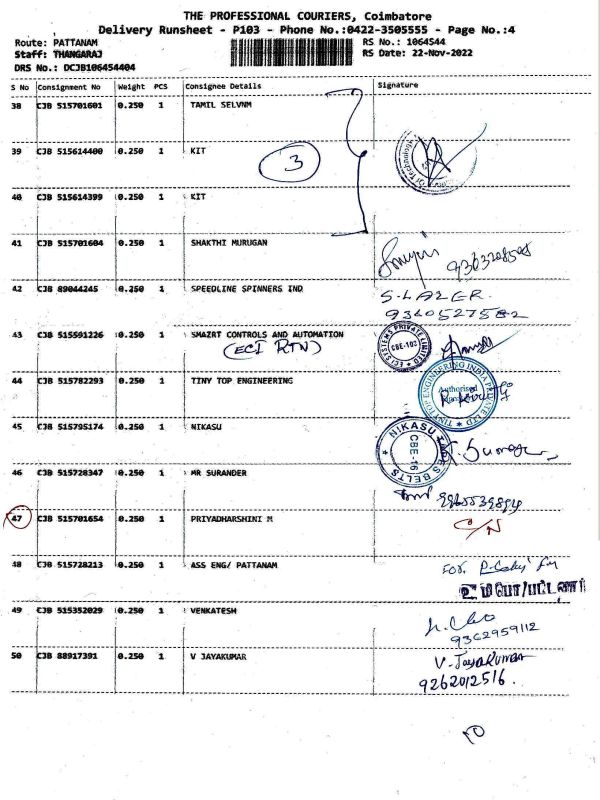 THE PROFESSIONAL COURIERS, Coimbatore
Delivery Runsheet - P103 - Phone No.:0422-3505555 - Page No.:4
Route: PATTANAM
RS No.: 1064544
Staff: THANGARAJ
RS Date: 22-Nov-2022
DRS No.: DCJB106454404
S No Consignment No Weight PCS Consignee Details Signature
38 CJB 515701601 0.250 1 TAMIL SELVNM
39 CJB 515614400 0.250 1 KIT 3
40 CJB 515614399 0.250 1 KIT
41 CJB 515701604 0.250 1 SHAKTHI MURUGAN
42 CJB 89044245 0.250 1 SPEEDLINE SPINNERS IND S.LAZER
9360527582
43 CJB 515591226 0.250 1 SMAZRT CONTROLS AND AUTOMATION
(ECI RTN)
ECI SYSTEMS PRIVATE LIMITED
CBE-103
44 CJB 515782293 0.250 1 TINY TOP ENGINEERING
TINY TOP ENGINEERING INDIA PRIVATE LTD
Authorised
45 CJB 515795174 0.250 1 NIKASU
NIKASU BELTS
CBE-16
46 CJB 515728347 0.250 1 MR SURANDER
47 CJB 515701654 0.250 1 PRIYADHARSHINI M C/N
48 CJB 515728213 0.250 1 ASS ENG/ PATTANAM For
49 CJB 515352029 0.250 1 VENKATESH
9362959112
50 CJB 88917391 0.250 1 V JAYAKUMAR V. Jayakumar
9262012516.